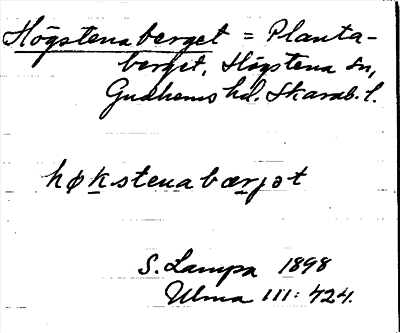 Högstenaberget = Planta-
berget, Högstena sn,
Gudhems hd. Skarab. l.
høkstenabærjət
S. Lampa 1898
Ulma III: 424.